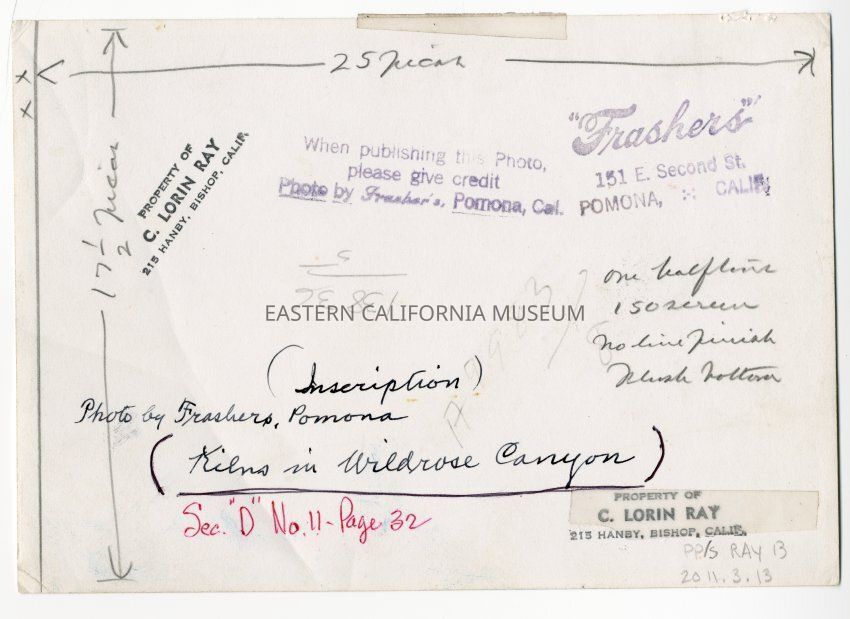 25 picas
17 1/2 picas
PROPERTY OF
C. LORIN RAY
215 HANBY, BISHOP, CALIF.
When publishing this Photo,
please give credit
Photo by Frasher's, Pomona, Cal.
"Frashers"
151 E. Second St.
POMONA, CALIF.
one halftone
150 screen
no line finish
flush bottom
EASTERN CALIFORNIA MUSEUM
(Inscription)
Photo by Frashers, Pomona
(Kilns in Wildrose Canyon)
Sec. "D" No. 11 - Page 32
PROPERTY OF
C. LORIN RAY
215 HANBY, BISHOP, CALIF.
PP/S RAY 13
2011.3.13